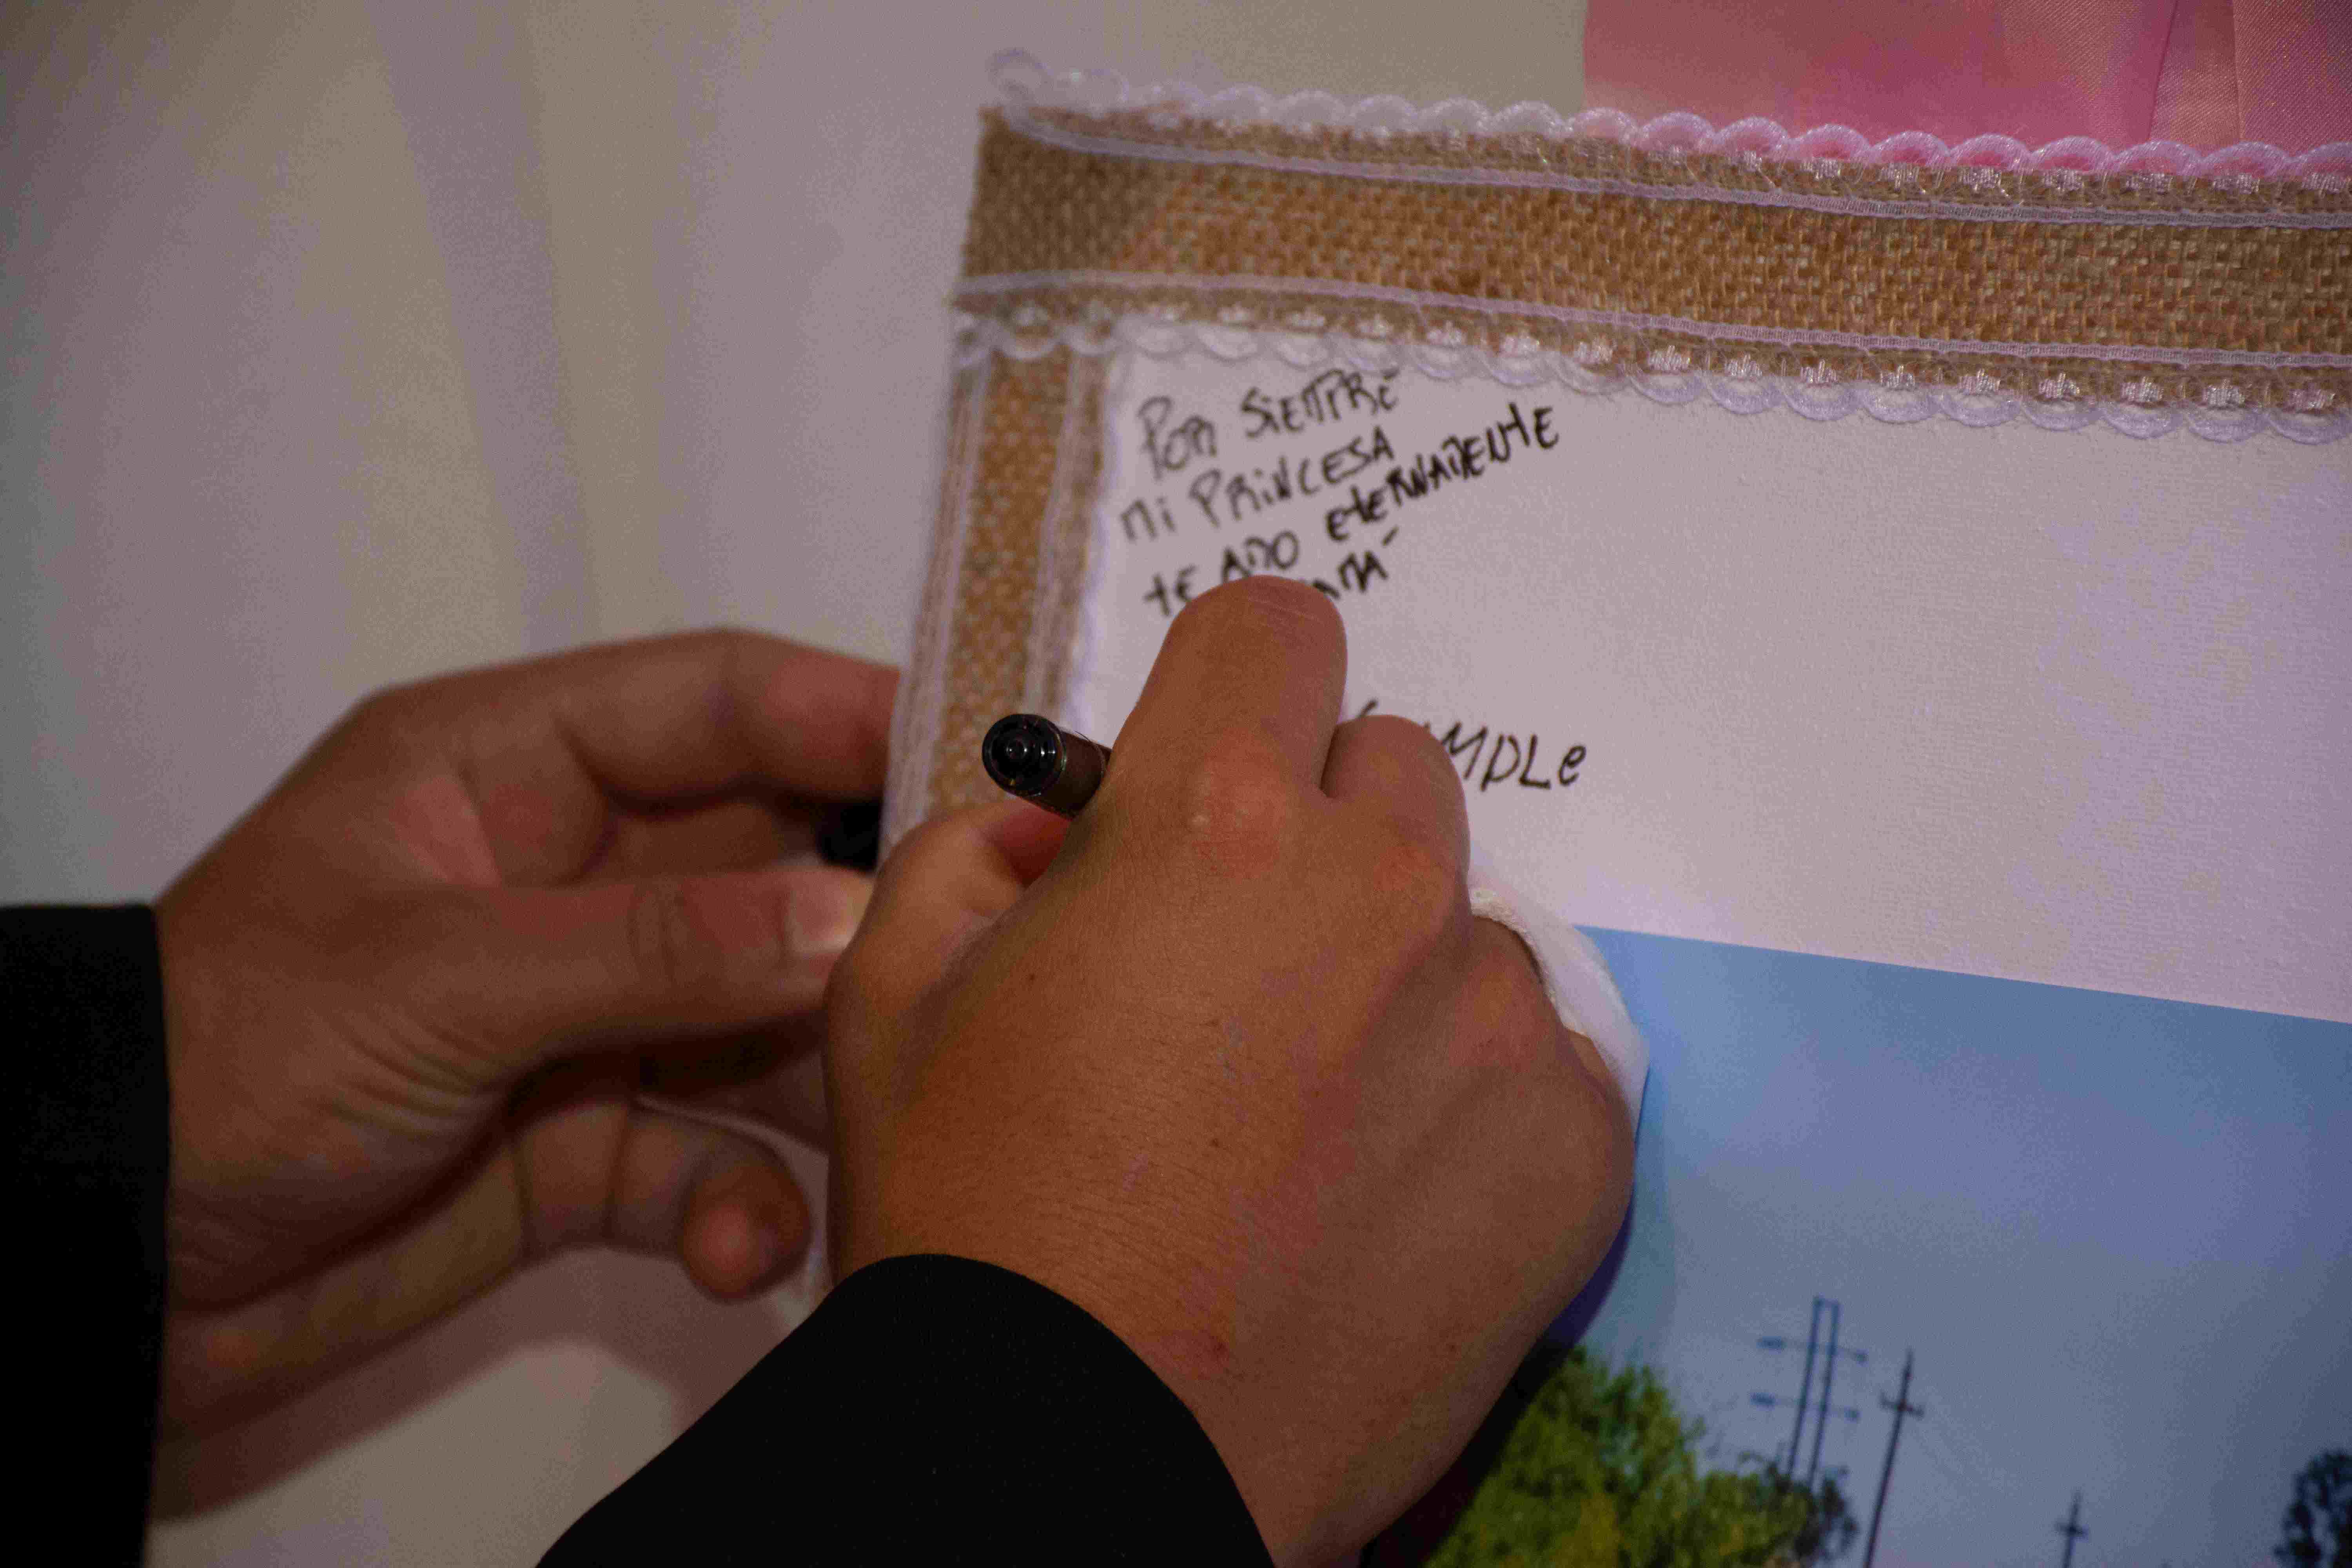 POR SIEMPRE
Mi PRiNCESA
tE AMO EtERNAMENtE